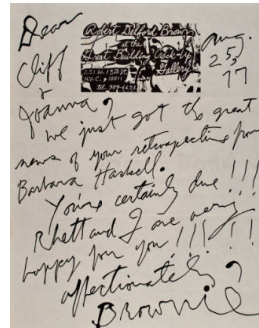 Dear
Cliff
&
Joanna,
Robert Delford Brown
at the
Great Building Crack-Up
Gallery
251 W. 13th St.
NYC. 10011
Aug.
25,
77
we just got the great
news of your retrospective from
Barbara Haskell.
You're certainly due!!!
Rhett and I are very
happy for you!!!!!
affectionately,
Brownie